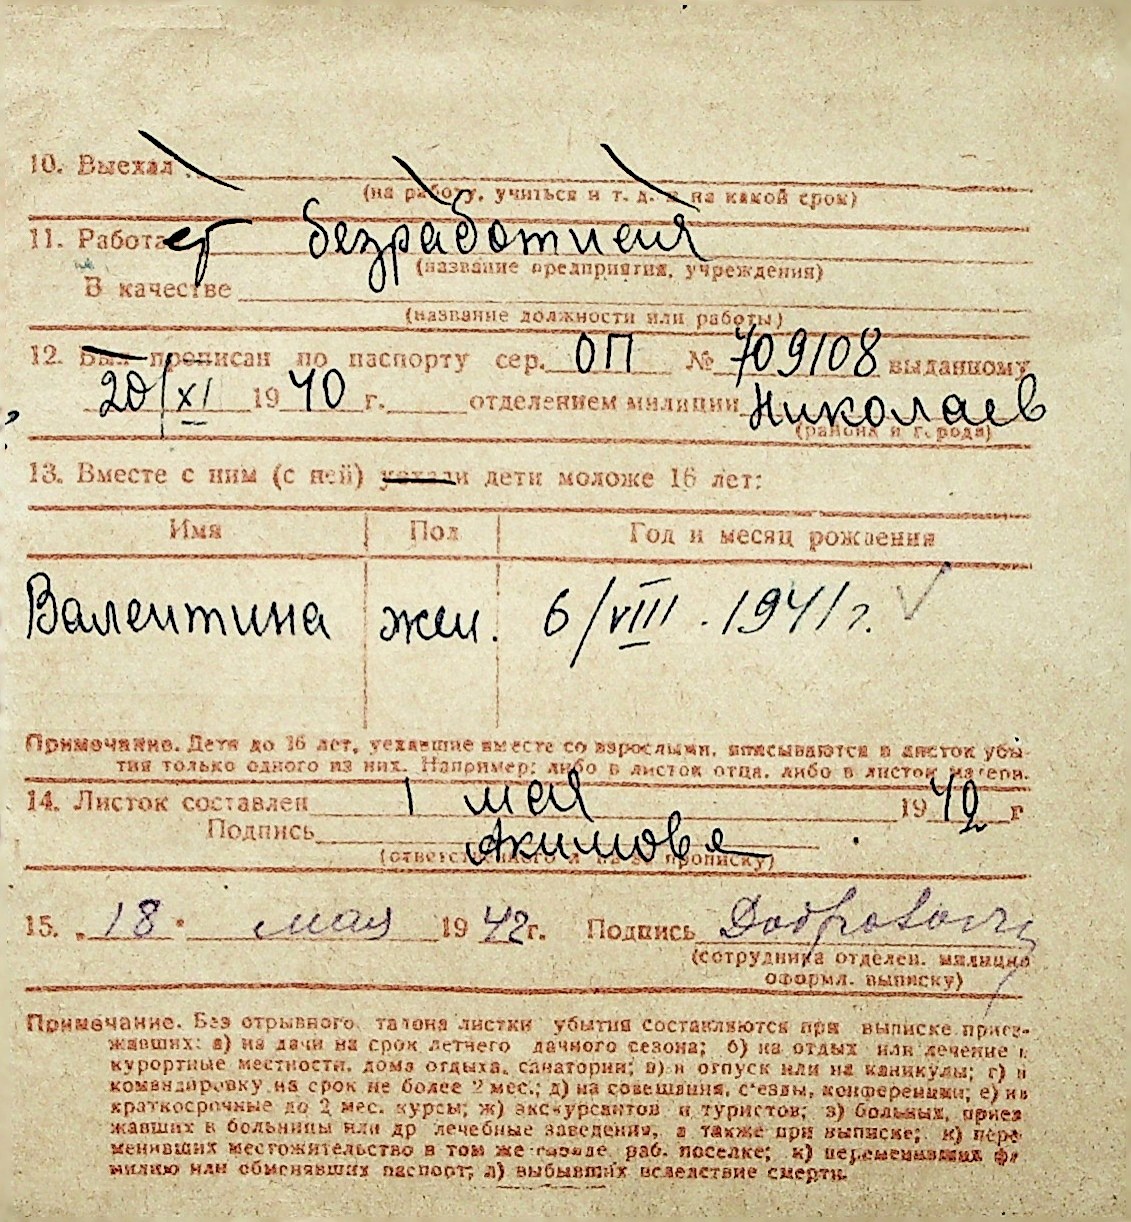 10. Выехал
(на работу, учиться и т. д. и на какой срок)
11. Работает безработная
(название предприятия, учреждения)
В качестве
(название должности или работы)
12. Был прописан по паспорту сер. ОП № 709108 выданному
20/XI 1940 г. отделением милиции Николаев
(района и города)
13. Вместе с ним (с ней) уехали дети моложе 16 лет:
Имя Пол Год и месяц рождения
Валентина жен. 6/VIII. 1941 г.
Примечание. Дети до 16 лет, уехавшие вместе со взрослыми, вписываются в листок убы-
тия только одного из них. Например: либо в листок отца, либо в листок матери.
14. Листок составлен 1 мая 1942 г
Подпись Акимова
(ответственного л за прописку)
15. "18" мая 1942 г. Подпись
(сотрудника отделен. милиции
оформл. выписку)
Примечание. Без отрывного талона листки убытия составляются при выписке приез-
жавших: а) на дачи на срок летнего дачного сезона; б) на отдых или лечение в
курортные местности, дома отдыха, санатории; в) в отпуск или на каникулы; г) в
командировку на срок не более 2 мес.; д) на совещания, с'езды, конференции; е) на
краткосрочные до 2 мес. курсы; ж) экскурсантов и туристов; з) больных, приез
жавших в больницы или др лечебные заведения, а также при выписке; и) пере
менивших местожительство в том же городе, раб. поселке; к) переменивших фа
милию или обменявших паспорт; л) выбывших вследствие смерти.